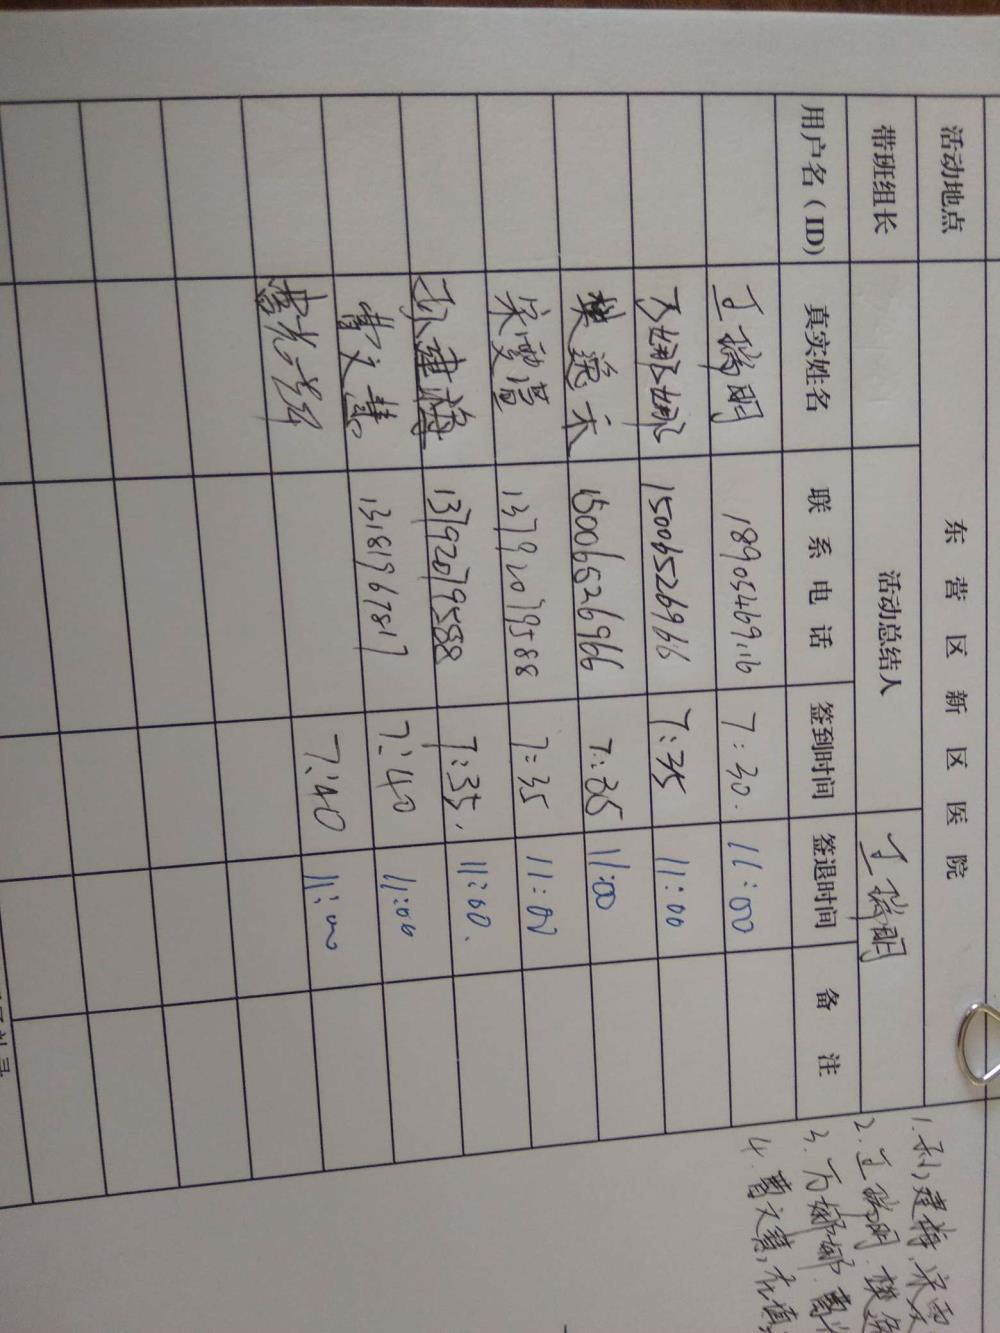 活动地点 东营区新区医院
带班组长 活动总结人 丁瑞明
用户名（ID) 真实姓名 联系电话 签到时间 签退时间 备注
丁瑞明 18905469116 7:30. 11:00
万娜娜 15006526966 7:35 11:00
樊逸禾 15006526966 7:35 11:00
宋雯 13792079588 7:35 11:00
孙建梅 13792079588 7:35. 11:00.
曹文慧 13181967817 7:40 11:00
7:40 11:00
1. 孙建梅、宋雯
2. 丁瑞明、樊逸
3. 万娜娜、
4. 曹文慧、